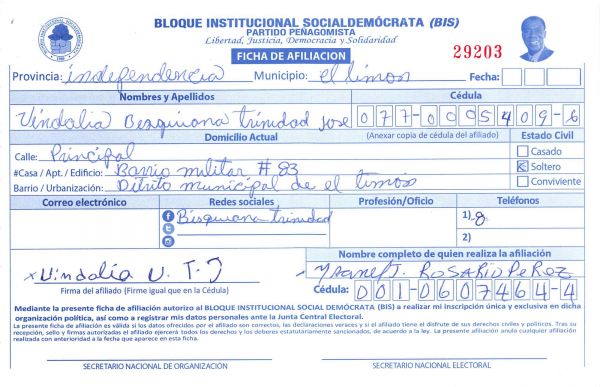 BLOQUE INSTITUCIONAL SOCIALDEMÓCRATA (BIS)
PARTIDO PEÑAGOMISTA
Libertad, Justicia, Democracia y Solidaridad
FICHA DE AFILIACION
29203
Provincia: independencia Municipio: el limon Fecha:
Nombres y Apellidos Cédula
Vindalia Besquiana trinidad jose 077-0005409-6
Domicilio Actual (Anexar copia de cédula del afiliado) Estado Civil
Calle: Principal Casado
#Casa / Apt. / Edificio: Barrio militar # 83 Soltero
Barrio / Urbanización: Ditrito municipal de el limon Conviviente
Correo electrónico Redes sociales Profesión/Oficio Teléfonos
Bisquiana trinidad 1) 8
2)
Nombre completo de quien realiza la afiliación
x Vindalia U. T. J ROSARIO PEROZ
Firma del afiliado (Firme igual que en la Cédula) Cédula: 001-0607464-4
Mediante la presente ficha de afiliación autorizo al BLOQUE INSTITUCIONAL SOCIAL DEMÓCRATA (BIS) a realizar mi inscripción única y exclusiva en dicha
organización política, así como a registrar mis datos personales ante la Junta Central Electoral.
La presente ficha de afiliación es válida si los datos ofrecidos por el afiliado son correctos, las declaraciones veraces y si el afiliado tiene el disfrute de sus derechos civiles y políticos. Tras su
recepción, sello y firmas autorizadas el afiliado ejercerá todos los derechos y los deberes estatutariamente sancionados, de acuerdo a la ley. La presente afiliación anula cualquier afiliación
realizada con anterioridad a la fecha que aparece en esta ficha.
SECRETARIO NACIONAL DE ORGANIZACIÓN SECRETARIO NACIONAL ELECTORAL